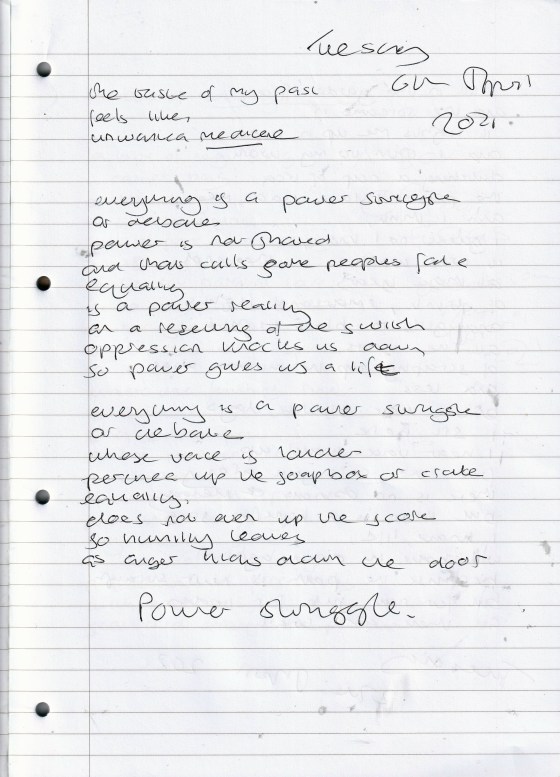 Tuesday
6th April
2021
the taste of my past
feels like,
unwanted medicine
everything is a power struggle
or debate
power is not shared
and that calls some peoples fate
equality
is a power reality
or a resetting of the switch
oppression knocks us down
so power gives us a lift
everything is a power struggle
or debate
whose voice is louder
perched up the soapbox or crate
equality.
does not even up the score
so humility leaves
as anger kicks down the door
Power struggle.